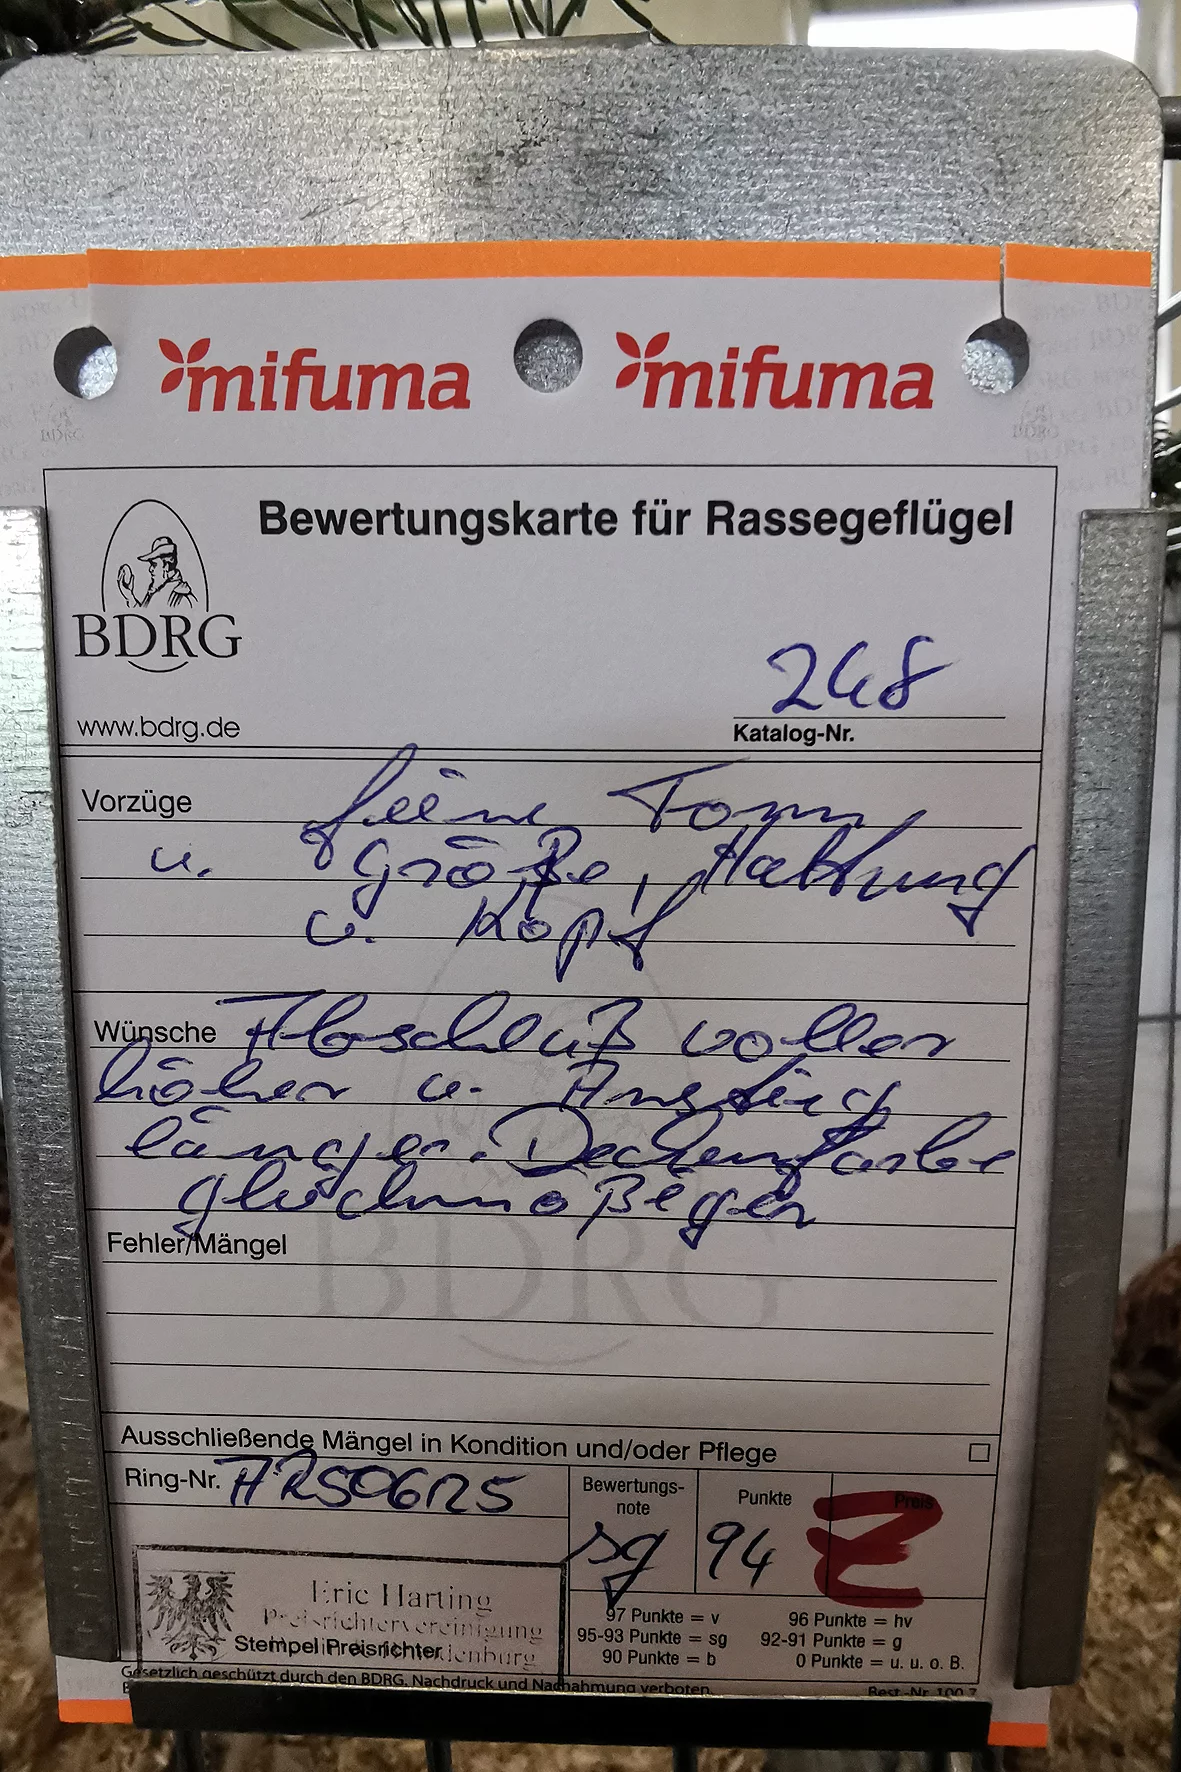 mifuma mifuma
Bewertungskarte für Rassegeflügel
BDRG
www.bdrg.de
248
Katalog-Nr.
Vorzüge feine Form
u. Größe, Haltung
u. Kopf
Wünsche Abschluß voller
höher u. Anstieg
länger. Deckenfarbe
gleichmäßiger
BDRG
Fehler/Mängel
Ausschließende Mängel in Kondition und/oder Pflege
Ring-Nr.
Bewertungs-
note
sg
Punkte
94
Preis
Z
Eric Harting
Preisrichtervereinigung
Stempel Preisrichter
97 Punkte = v 96 Punkte = hv
95-93 Punkte = sg 92-91 Punkte = g
90 Punkte = b 0 Punkte = u. u. o. B.
Gesetzlich geschützt durch den BDRG. Nachdruck und Nachahmung verboten.
Best.-Nr. 100.7